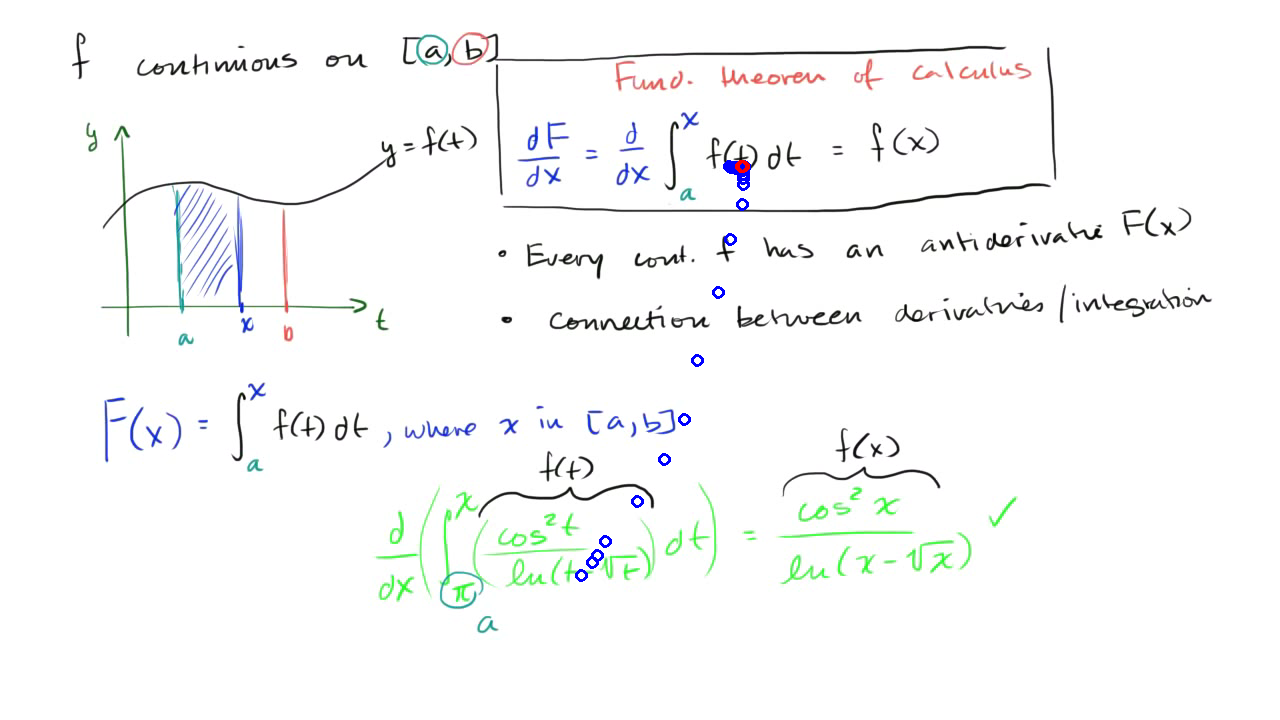 f continuous on [a, b]
Fund. theorem of calculus
dF/dx = d/dx ∫_a^x f(t) dt = f(x)
y
y = f(t)
a x b t
• Every cont. f has an antiderivative F(x)
• connection between derivatives / integration
F(x) = ∫_a^x f(t) dt , where x in [a, b]
f(t) f(x)
d/dx ( ∫_π^x ( cos²t / ln(t-√t) ) dt ) = cos² x / ln(x-√x) ✓
a